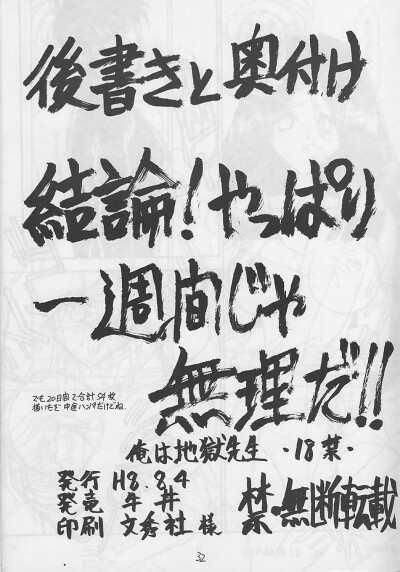 後書きと奥付け
結論!やっぱり
一週間じゃ
無理だ!!
でも20日間で合計54枚
描いたぞ 中途ハンパだけどね.
俺は地獄先生 ・18禁・
発行 H8.8.4
発竜 牛井
印刷 文秀社 様
禁・無断転載
32